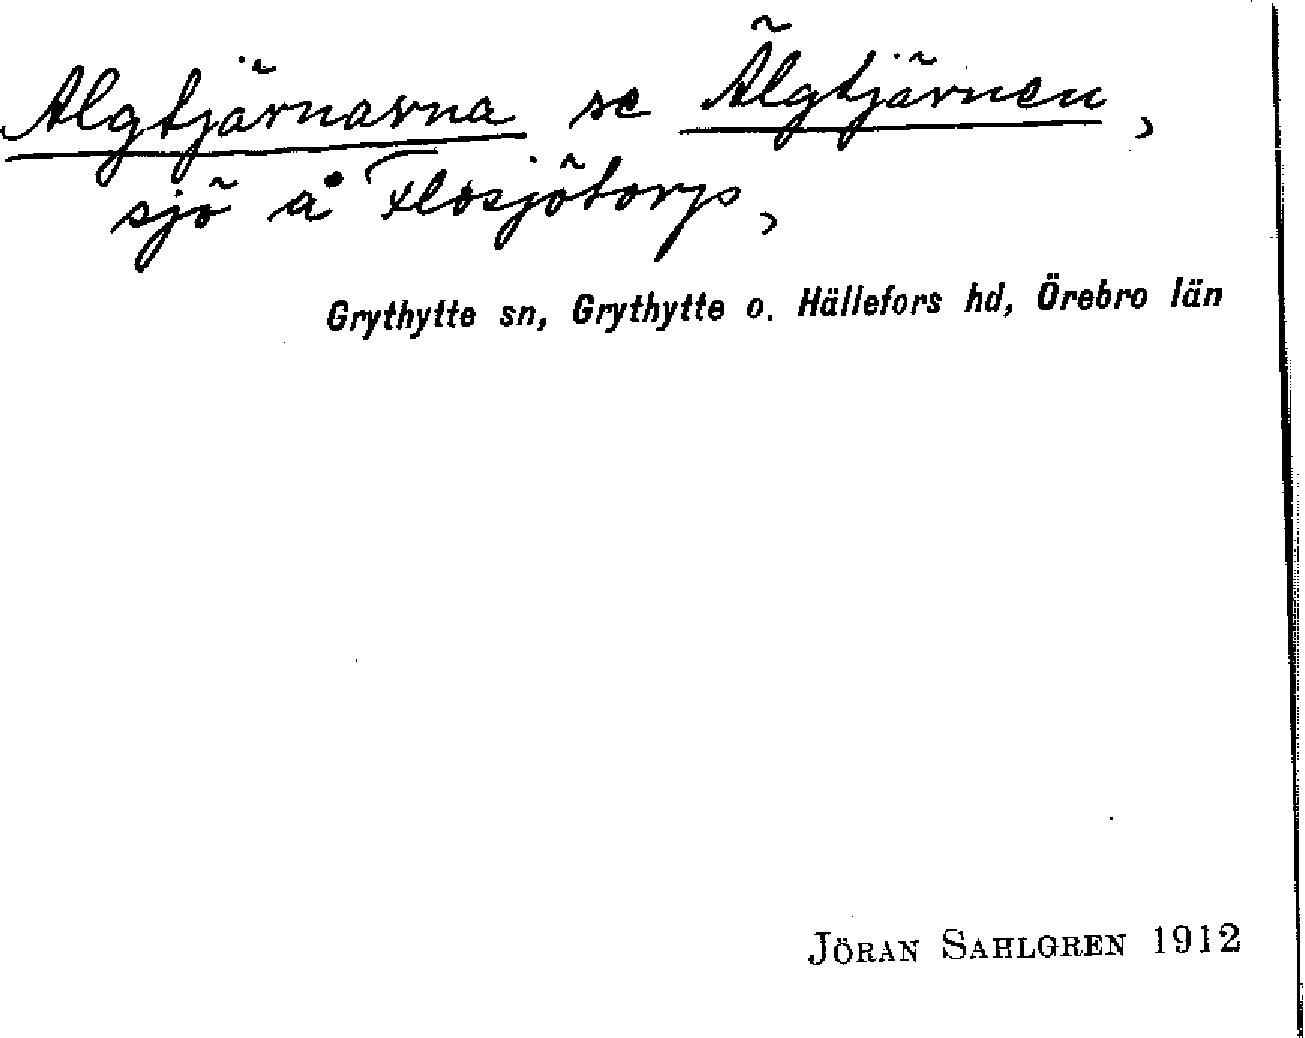 Älgtjärnarna se Älgtjärnen,
sjö å Flosjötorps,
Grythytte sn, Grythytte o. Hällefors hd, Örebro län
JÖRAN SAHLGREN 1912